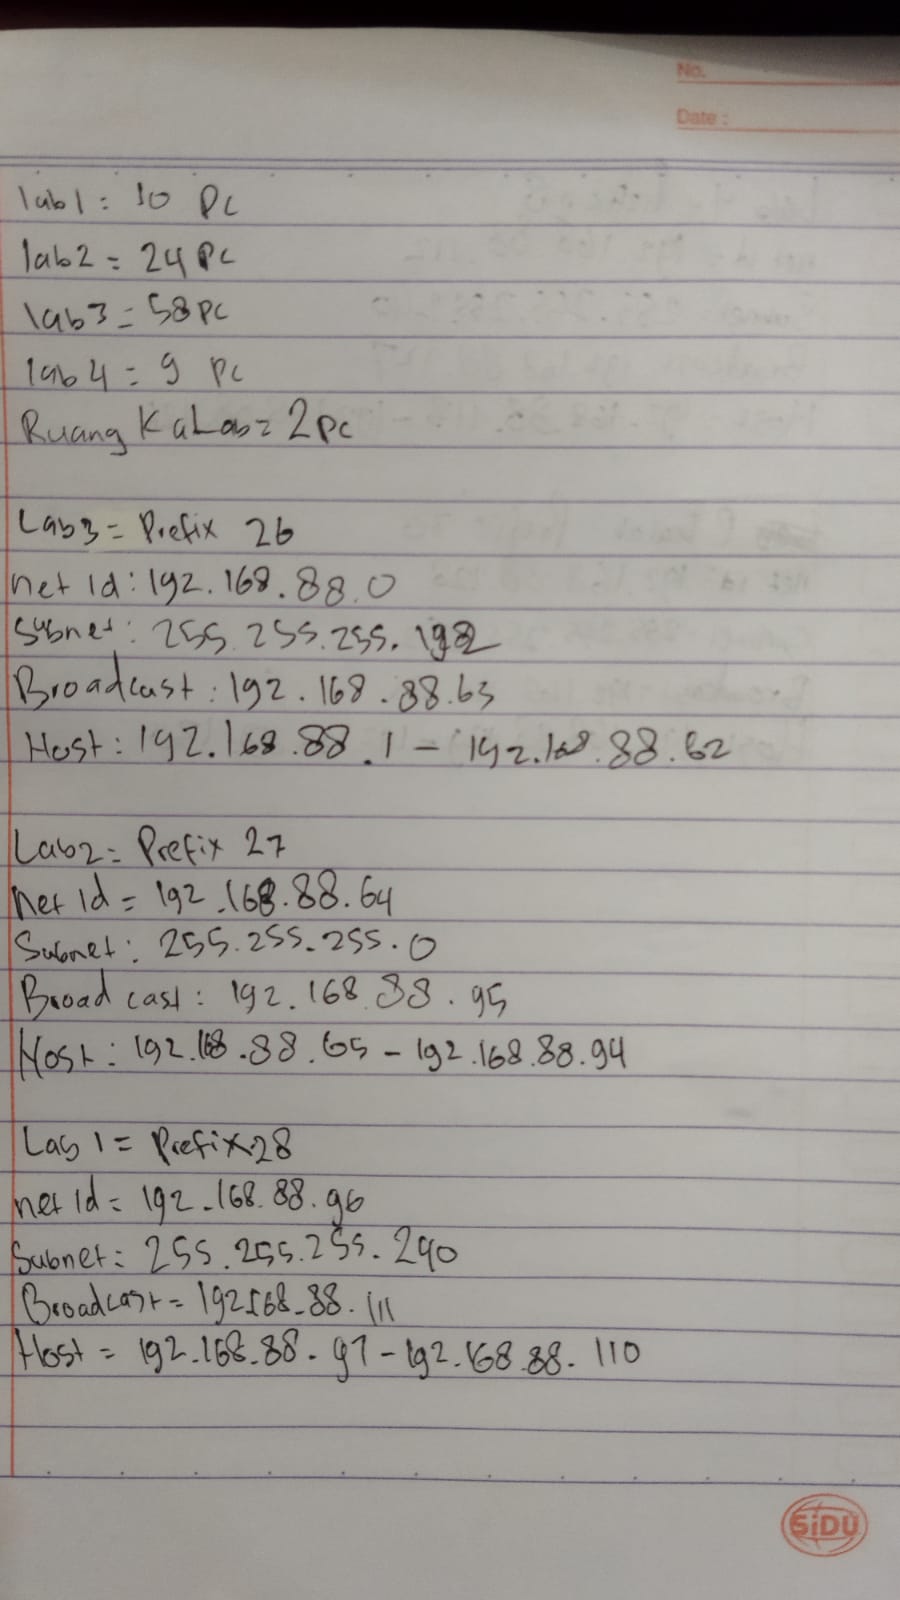 No.
Date :
lab1 = 10 Pc
lab2 = 24 Pc
lab3 = 58 Pc
lab 4 = 9 Pc
Ruang KaLab = 2 Pc
Lab3 = Prefix 26
net Id : 192.168.88.0
Subnet : 255.255.255.192
Broadcast : 192.168.88.63
Host : 192.168.88.1 - 192.168.88.62
Lab2 = Prefix 27
net Id = 192.168.88.64
Subnet : 255.255.255.0
Broad cast : 192.168.88.95
Host : 192.168.88.65 - 192.168.88.94
Lab 1 = Prefix 28
net Id = 192.168.88.96
Subnet = 255.255.255.240
Broadcast = 192.168.88.111
Host = 192.168.88.97 - 192.168.88.110
SiDU